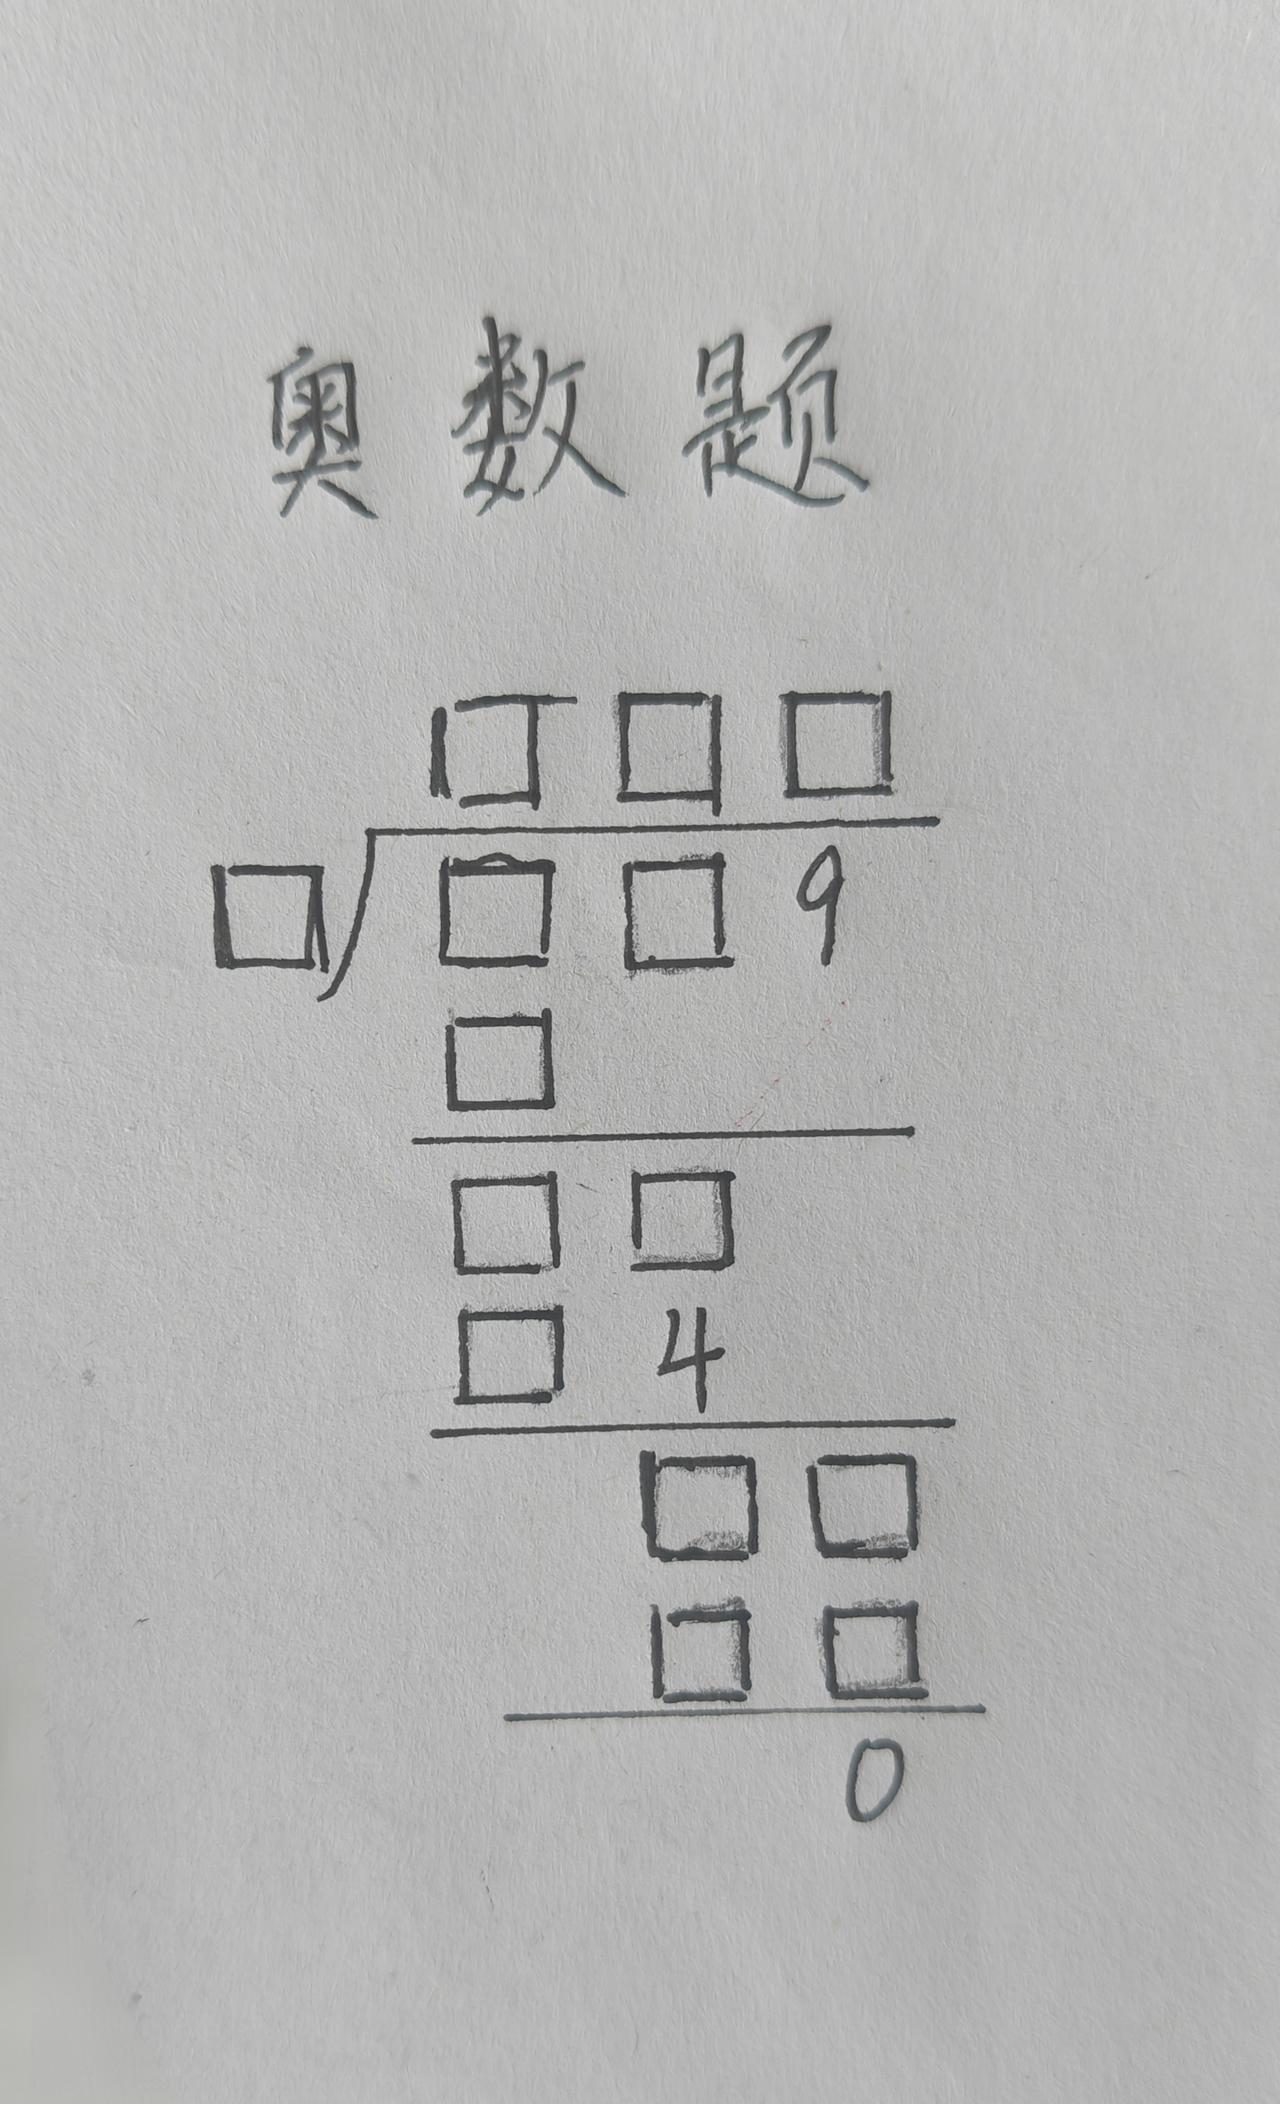 奥数题
□□□
□ □□9
□
□□
□4
□□
□□
0